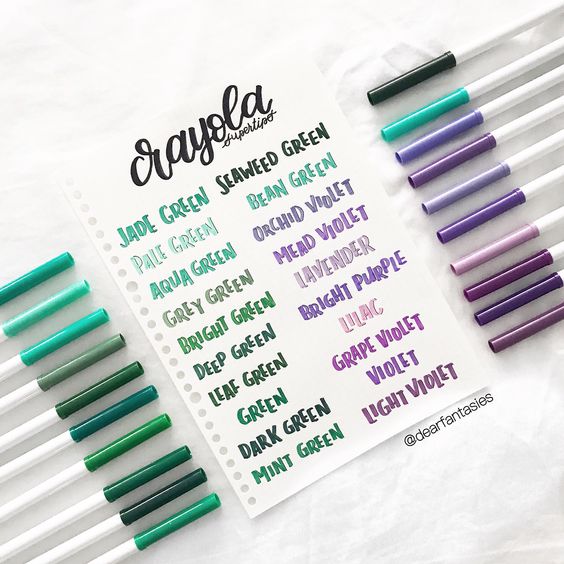 crayola
supertips
JADE GREEN
PALE GREEN
AQUA GREEN
GREY GREEN
BRIGHT GREEN
DEEP GREEN
LEAF GREEN
GREEN
DARK GREEN
MINT GREEN
SEAWEED GREEN
BEAN GREEN
ORCHID VIOLET
MEAD VIOLET
LAVENDER
BRIGHT PURPLE
LILAC
GRAPE VIOLET
VIOLET
LIGHT VIOLET
@dearfantasies